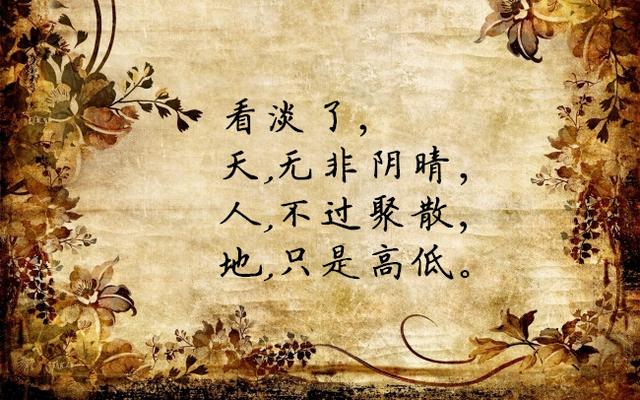 看淡了，
天,无非阴晴，
人,不过聚散，
地,只是高低。